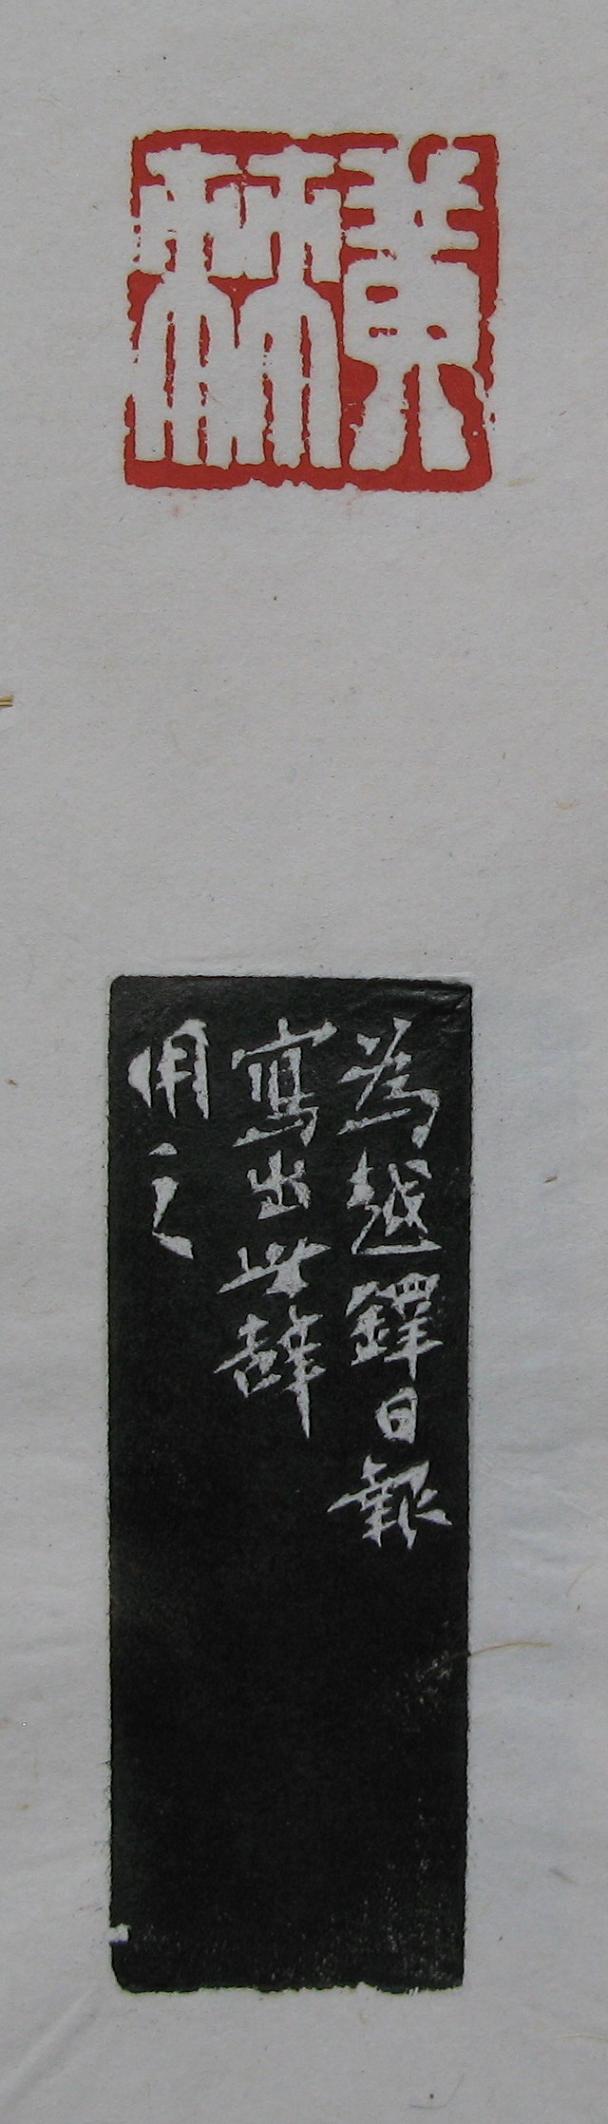 黃棘
為越鐸日報
寫出世辭
用之